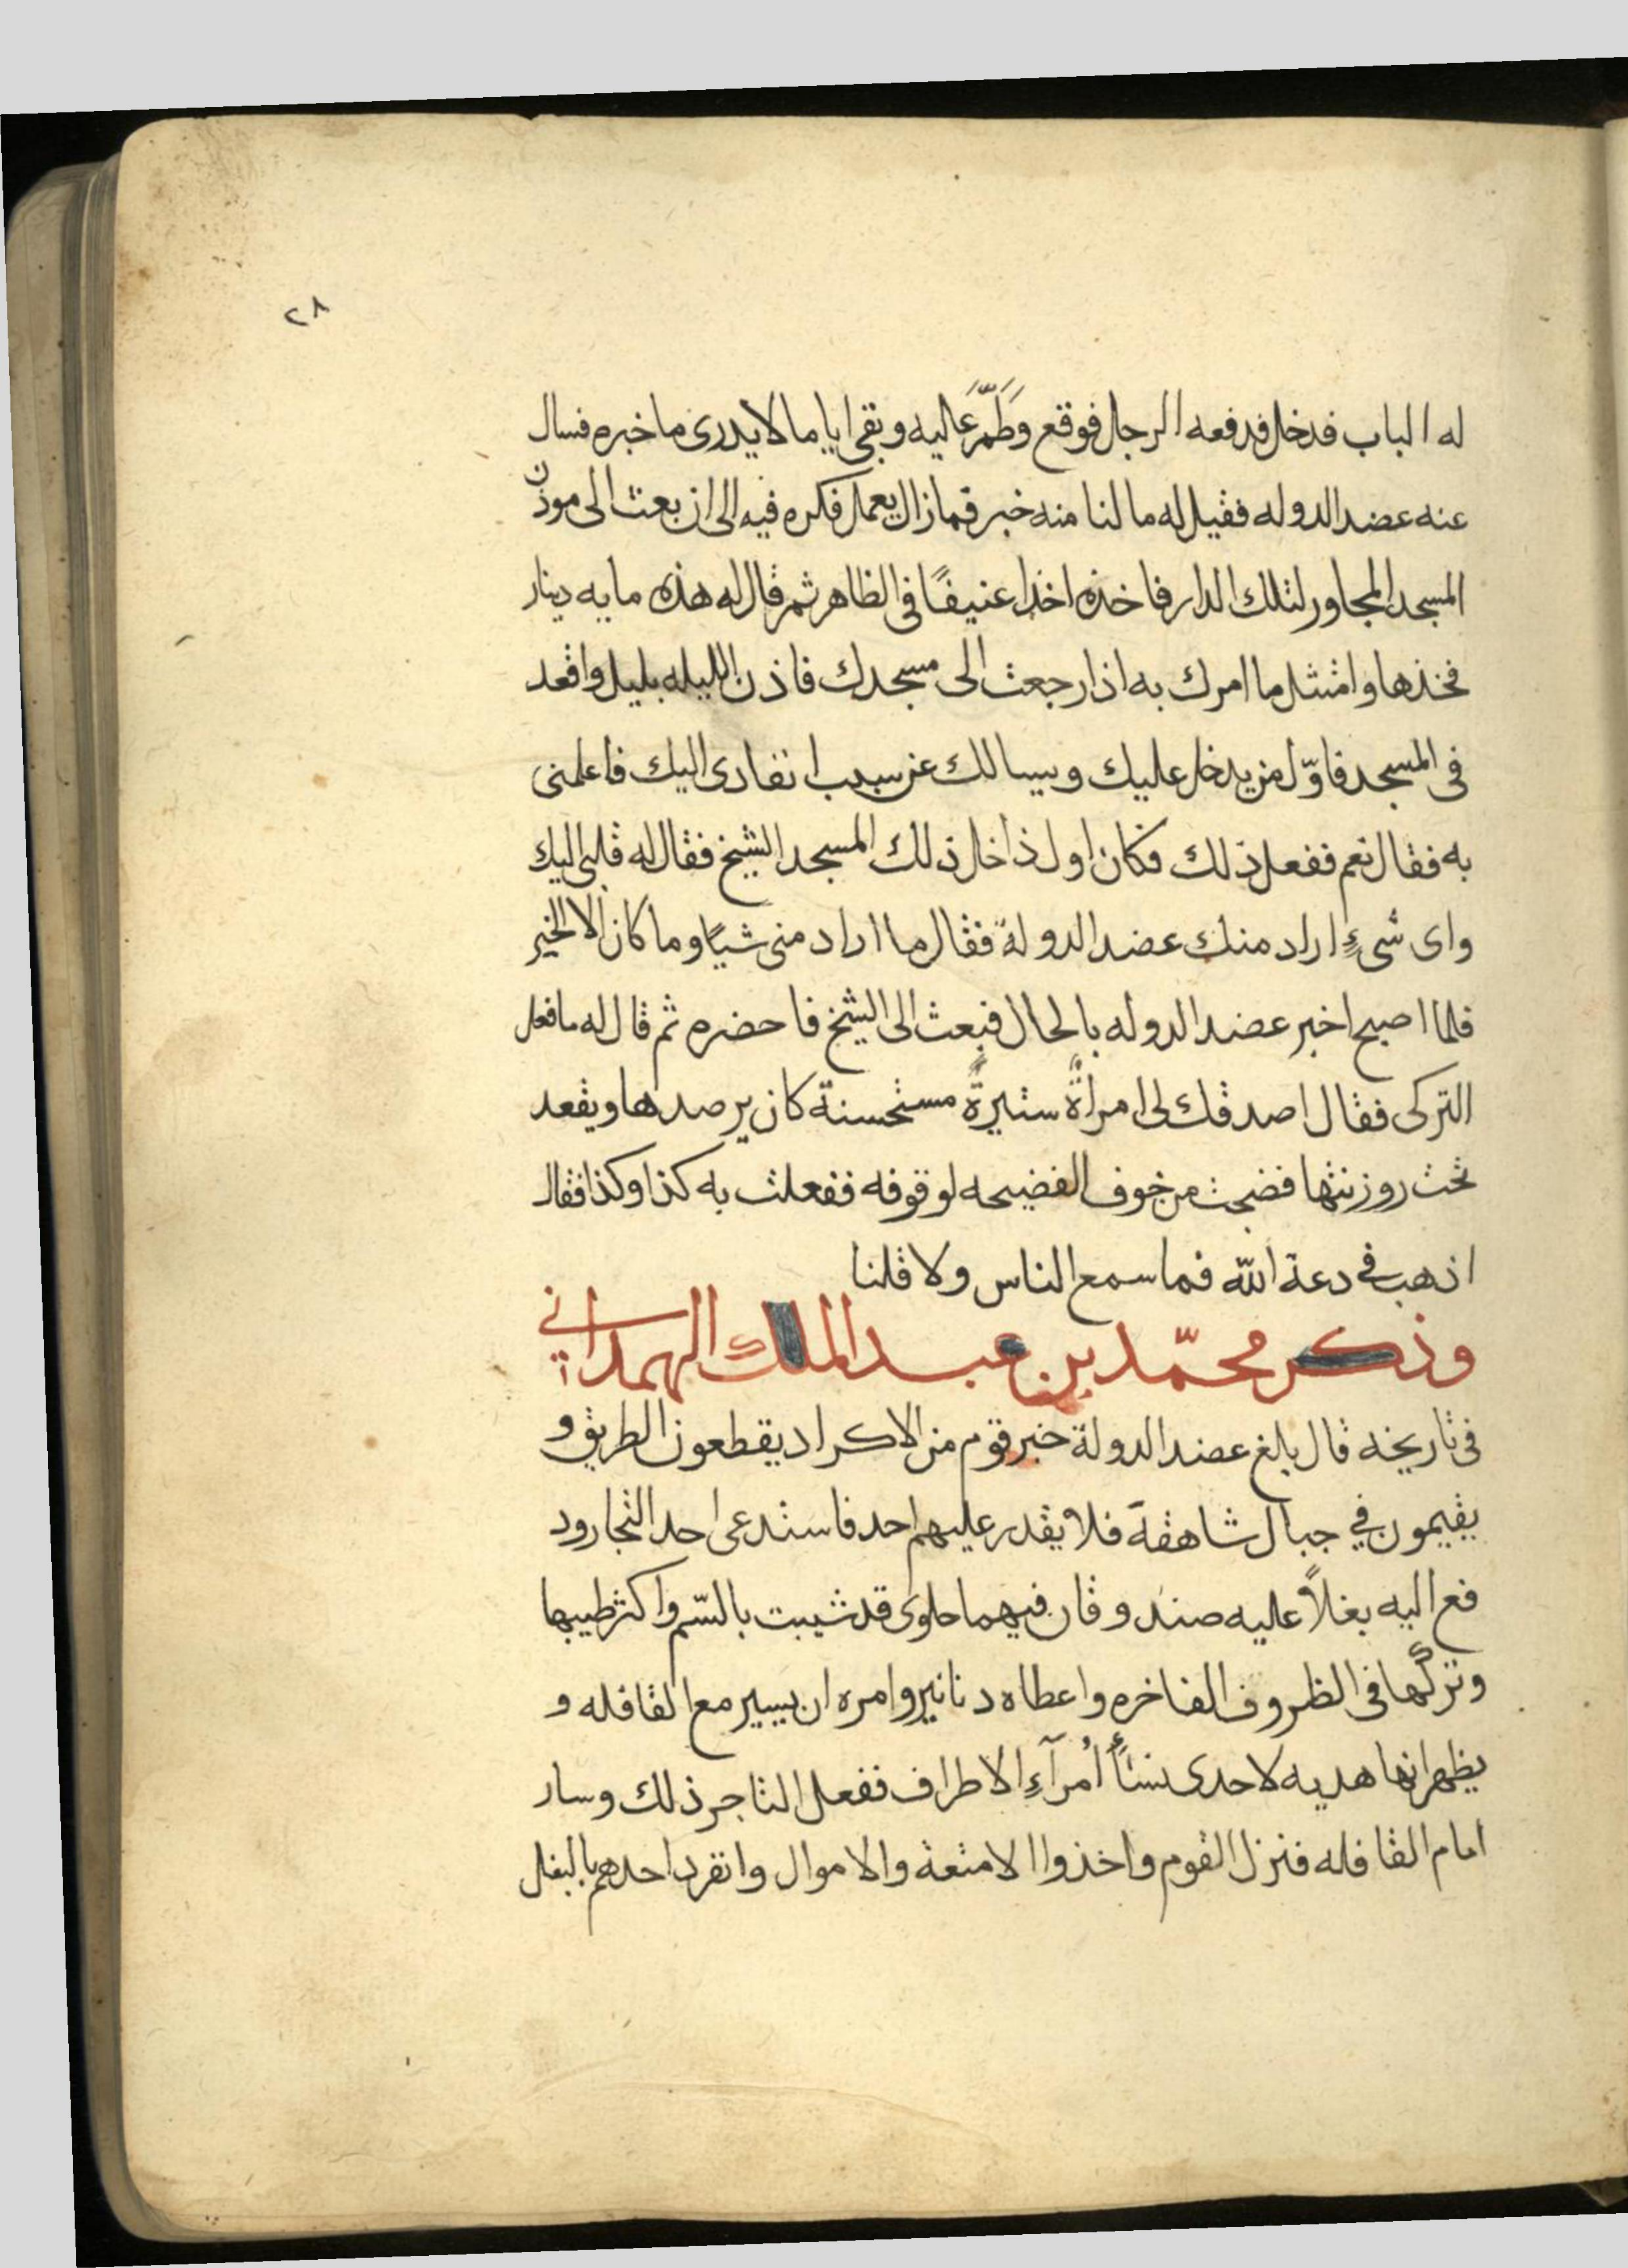 ٢٨
له الباب فدخل فدفعه الرجل فوقع وَطَمَّ عَليه وبقى اياما لا يدرى ما خبره فسال
عنه عضد الدوله فقيل له ما لنا منه خبر فما زال يعمل فكره فيه الى ان بعث الى موذن
المسجد المجاور لتلك الدار فاخذه اخذا عنيفًا فى الظاهر ثم قال له هذه مايه دينار
فخذها وامتثل ما امرك به اذا رجعت الى مسجدك فاذن الليله بليل واقعد
فى المسجد فاوّل من يدخل عليك ويسالك عن سبب انفاذى اليك فاعلمنى
به فقال نعم ففعل ذلك فكان اول داخل ذلك المسجد الشيخ فقال له قلبى اليك
واى شىءٍ اراد منك عضد الدولة فقال ما اراد منى شيًا وما كان الا الخير
فلما اصبح اخبر عضد الدوله بالحال فبعث الى الشيخ فاحضره ثم قال له ما فعل
التركى فقال اصدقك لى امراةٌ ستيرةٌ مستحسنة كان يرصدها ويقعد
تحت روزنتها فضجت من خوف الفضيحه لوقوفه ففعلت به كذا وكذا فقال
اذهب فى دعة الله فما سمع الناس ولا قلنا
وذكر محمّد بن عبد الملك الهمدانى
فى تاريخه قال بلغ عضد الدولة خبر قوم من الاكراد يقطعون الطريق و
يقيمون فى جبال شاهقة فلا يقدر عليهم احد فاستدعى احد التجار ود
فع اليه بغلاً عليه صندوقان فيهما حلوى قد شيبت بالسّم واكثر طيبها
وتركها فى الظروف الفاخره واعطاه دنانير وامره ان يسير مع القافله و
يظهر انها هديه لاحدى نسأ اُمرآءِ الاطراف ففعل التاجر ذلك وسار
امام القافله فنزل القوم واخذوا الامتعة والاموال وانفرد احدهم بالبغل